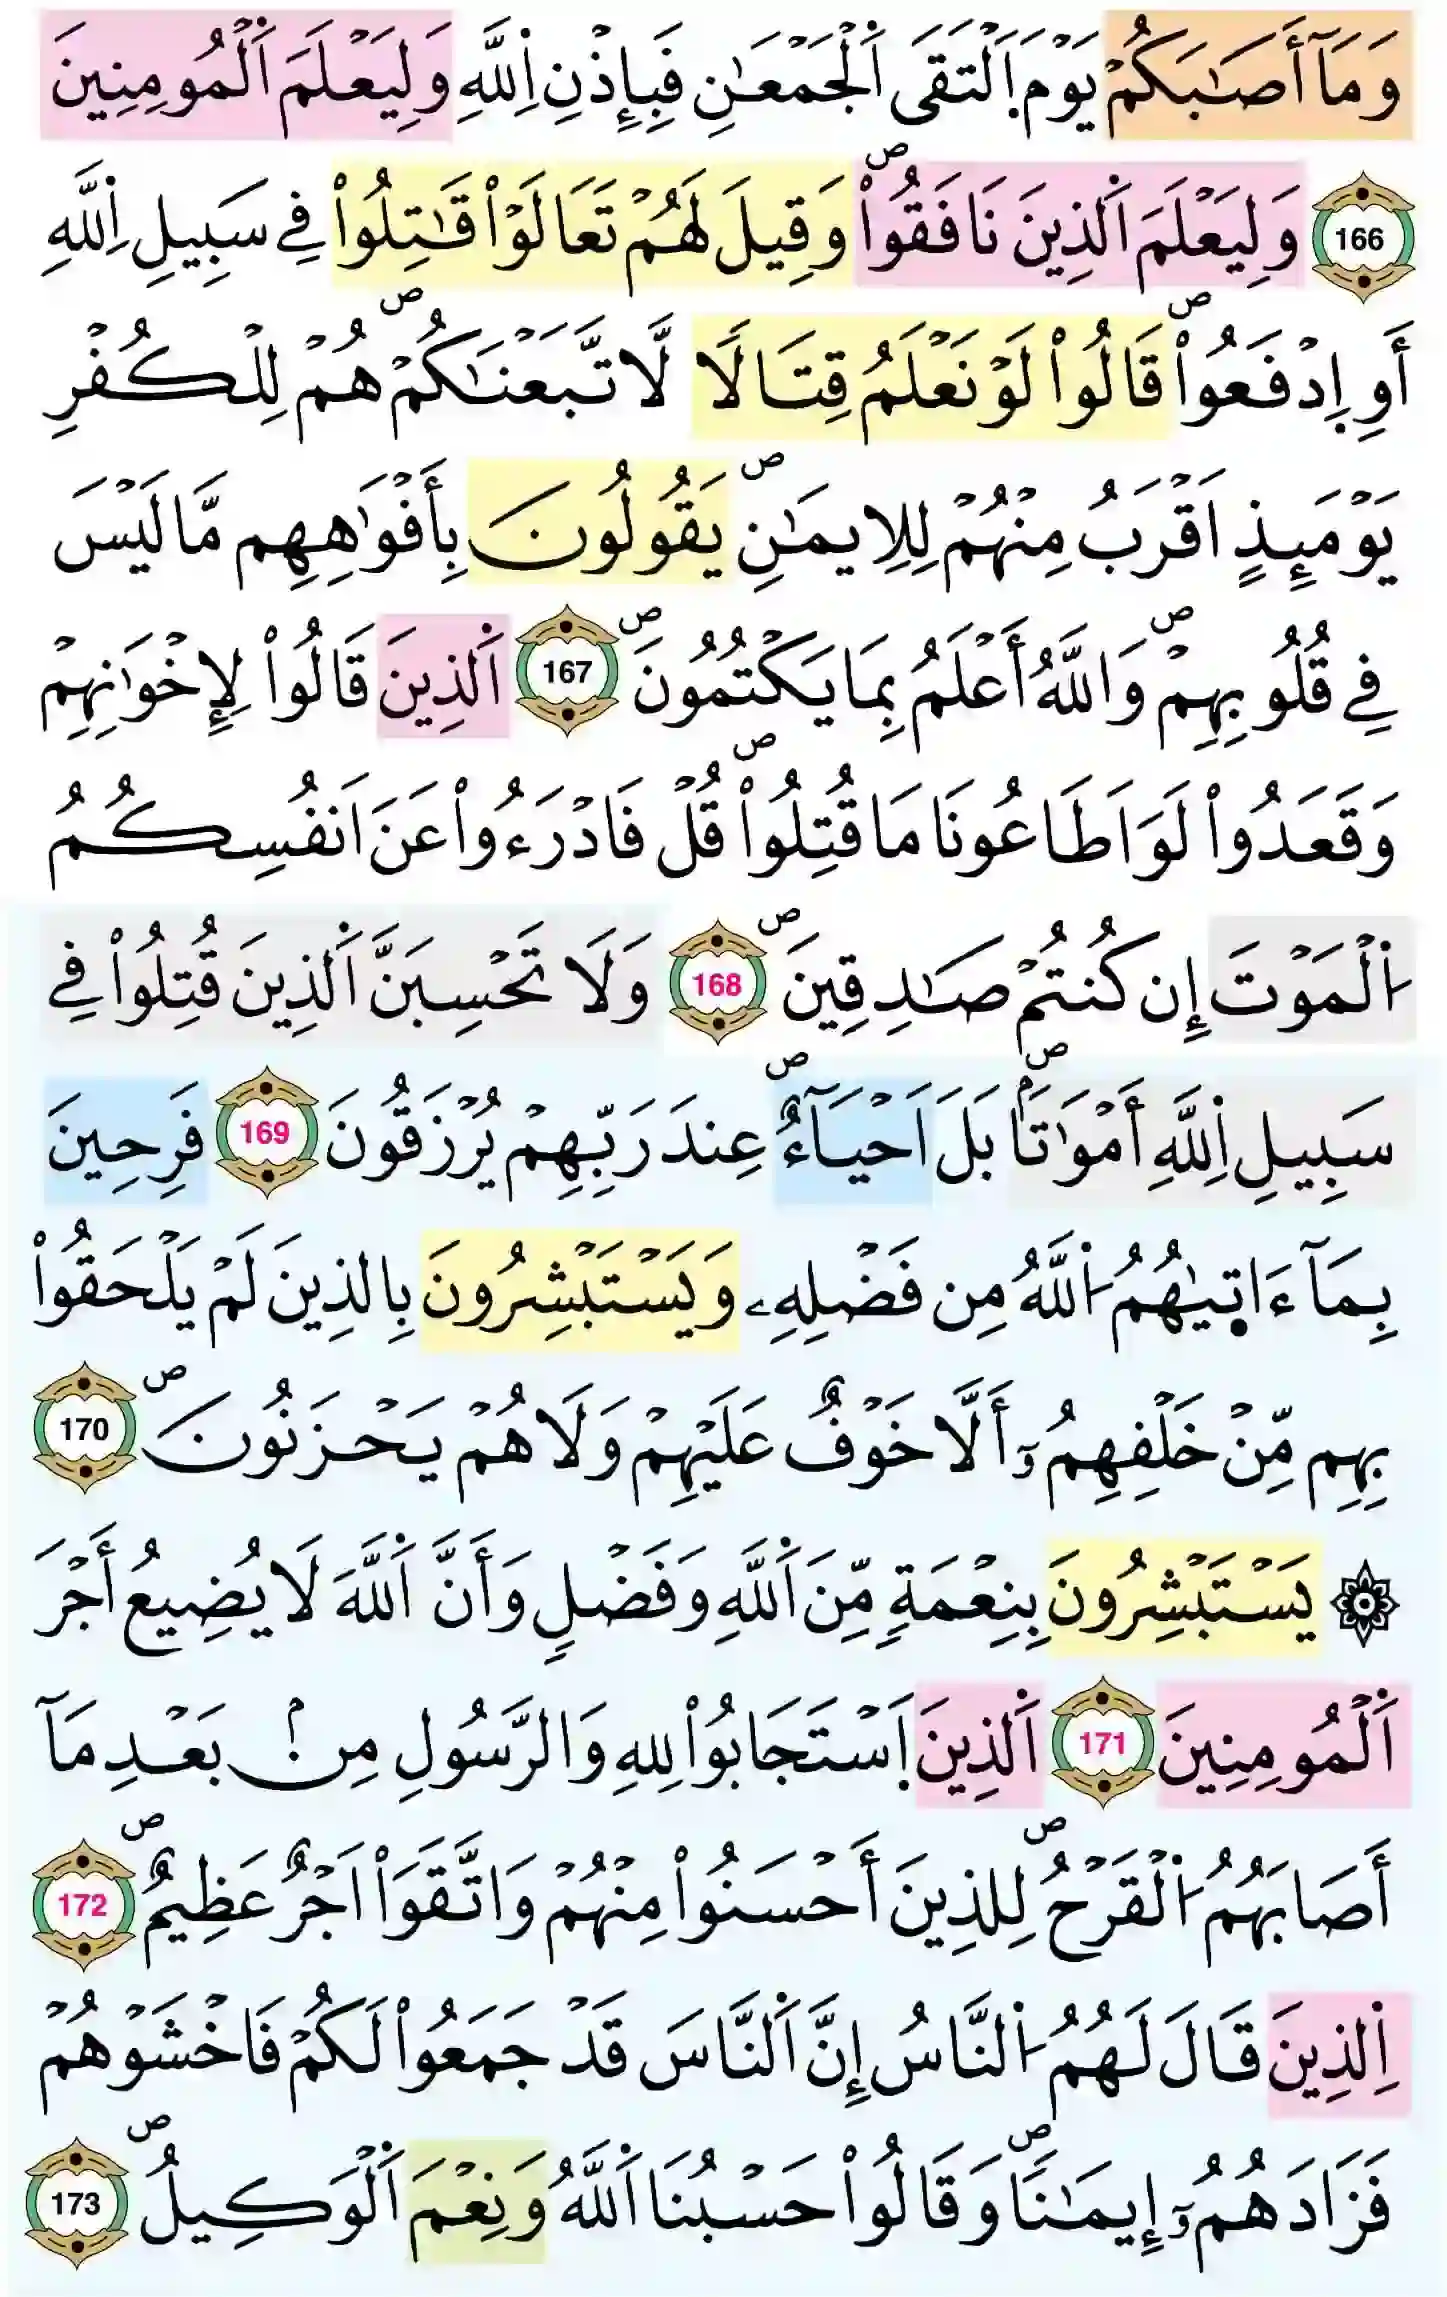 وَمَآ أَصَٰبَكُمْ يَوْمَ اَ۬لْتَقَى اَ۬لْجَمْعَٰنِ فَبِإِذْنِ اِ۬للَّهِ وَلِيَعْلَمَ اَ۬لْمُومِنِينَ
166 وَلِيَعْلَمَ اَ۬لذِينَ نَافَقُواْۖ وَقِيلَ لَهُمْ تَعَالَوْاْ قَٰتِلُواْ فِے سَبِيلِ اِ۬للَّهِ
أَوِ اِ۪دْفَعُواْۖ قَالُواْ لَوْ نَعْلَمُ قِتَالٗا لَّاتَّبَعْنَٰكُمْۖ هُمْ لِلْكُفْرِ
يَوْمَئِذٍ اَقْرَبُ مِنْهُمْ لِلِايمَٰنِۖ يَقُولُونَ بِأَفْوَٰهِهِم مَّا لَيْسَ
فِے قُلُوبِهِمْۖ وَاللَّهُ أَعْلَمُ بِمَا يَكْتُمُونَۖ 167 اَ۬لذِينَ قَالُواْ لِإِخْوَٰنِهِمْ
وَقَعَدُواْ لَوَ اَطَاعُونَا مَا قُتِلُواْۖ قُلْ فَادْرَءُواْ عَنَ اَنفُسِكُمُ
اُ۬لْمَوْتَ إِن كُنتُمْ صَٰدِقِينَۖ 168 وَلَا تَحْسِبَنَّ اَ۬لذِينَ قُتِلُواْ فِے
سَبِيلِ اِ۬للَّهِ أَمْوَٰتاَۢۖ بَلَ اَحْيَآءٌۖ عِندَ رَبِّهِمْ يُرْزَقُونَ 169 فَرِحِينَ
بِمَآ ءَات۪يٰهُمُ اُ۬للَّهُ مِن فَضْلِهِۦ وَيَسْتَبْشِرُونَ بِالذِينَ لَمْ يَلْحَقُواْ
بِهِم مِّنْ خَلْفِهِمُۥٓ أَلَّا خَوْفٌ عَلَيْهِمْ وَلَا هُمْ يَحْزَنُونَۖ 170
۞ يَسْتَبْشِرُونَ بِنِعْمَةٖ مِّنَ اَ۬للَّهِ وَفَضْلٖ وَأَنَّ اَ۬للَّهَ لَا يُضِيعُ أَجْرَ
اَ۬لْمُومِنِينَ 171 اَ۬لذِينَ اَ۪سْتَجَابُواْ لِلهِ وَالرَّسُولِ مِنۢ بَعْدِ مَآ
أَصَابَهُمُ اُ۬لْقَرْحُۖ لِلذِينَ أَحْسَنُواْ مِنْهُمْ وَاتَّقَوَاْ اَجْرٌ عَظِيمٌۖ 172
اِ۬لذِينَ قَالَ لَهُمُ اُ۬لنَّاسُ إِنَّ اَ۬لنَّاسَ قَدْ جَمَعُواْ لَكُمْ فَاخْشَوْهُمْ
فَزَادَهُمُۥٓ إِيمَٰناٗۖ وَقَالُواْ حَسْبُنَا اَ۬للَّهُ وَنِعْمَ اَ۬لْوَكِيلُۖ 173